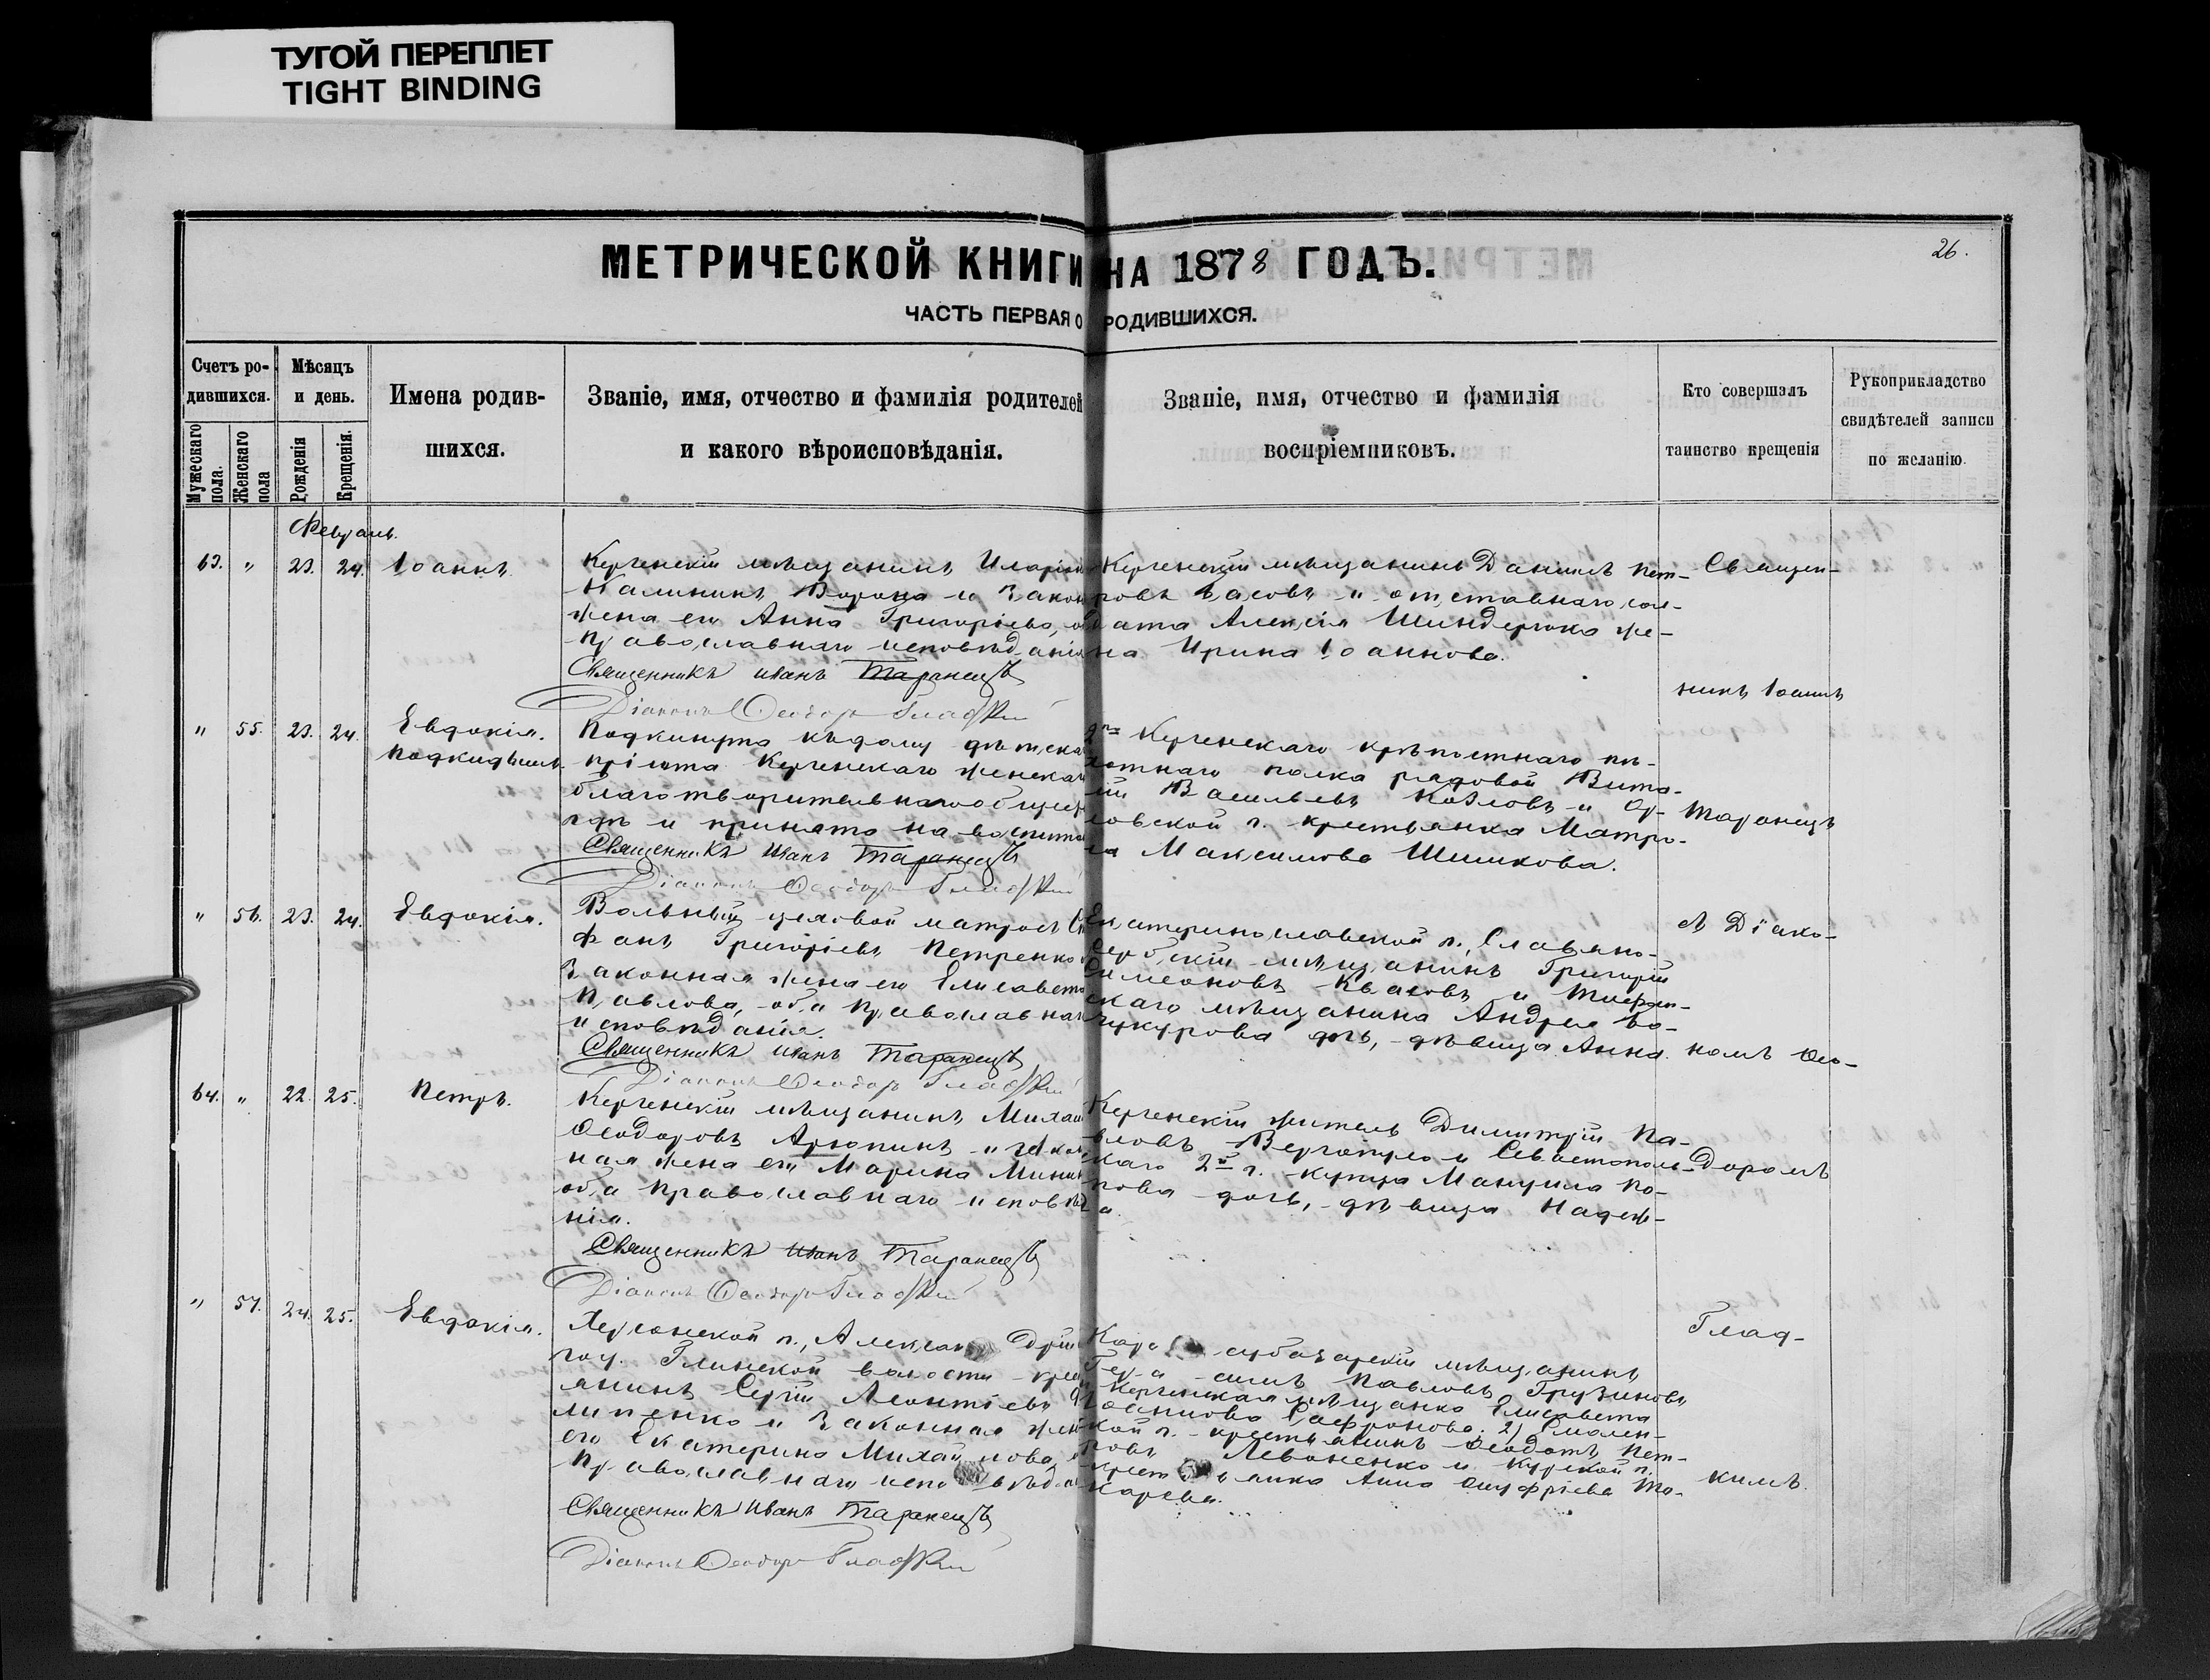 ТУГОЙ ПЕРЕПЛЕТ
TIGHT BINDING
26.
МЕТРИЧЕСКОЙ КНИГИ НА 1878 ГОДЪ.
ЧАСТЬ ПЕРВАЯ О РОДИВШИХСЯ.
Счетъ ро-
дившихся.
Мужескаго пола.
Женскаго пола
Мѣсяцъ
и день.
Рожденія
Крещенія.
Имена родив-
шихся.
Званіе, имя, отчество и фамилія родителей
и какого вѣроисповѣданія.
Званіе, имя, отчество и фамилія
воспріемниковъ.
Кто совершалъ
таинство крещенія
Рукоприкладство
свидѣтелей записи
по желанію.
Февраль.
63. " 23. 24. Іоаннъ.
Керченскій мѣщанинъ Иларіон
Калининъ Ворона и закон
жена его Анна Григоріева, об
православнаго исповѣданія
Священникъ Иванъ Таранецъ
Діаконъ Ѳеодоръ Гладкій
Керченскій мѣщанинъ Даніилъ Пет-
ровъ и отставнаго сол-
дата Алексія Шиндерука же-
на Ирина Іоаннова.
" 55. 23. 24. Евдокія.
подкидышъ
Подкинута къ дому дѣтска
пріюта Керченскаго женскаг
благотворительнаго общес
и принята на воспита
Священникъ Иванъ Таранецъ
Діаконъ Ѳеодоръ Гладкій
Керченскаго крѣпостнаго пѣ-
хотнаго полка рядовой Вита-
лій Васильевъ Козловъ и Ор-
ловской г. крестьянка Матро-
на Максимова Шишкова.
" 56. 23. 24. Евдокія.
Вольный цеховой матросъ
фанъ Григоріевъ Петренко
законная жена его Елисавета
Павлова, оба православнаг
исповѣданія.
Священникъ Иванъ Таранецъ
Діаконъ Ѳеодоръ Гладкій
Екатеринославской г., Славяно-
сербскій мѣщанинъ Григорій
Симеоновъ Квасовъ и
скаго мѣщанина Андрея Бо-
чукурова дочь, дѣвица Анна.
64. " 22. 25. Петръ.
Керченскій мѣщанинъ Михаил
Ѳеодоровъ Арюпинъ и закон
ная жена его Марина
оба православнаго исповѣд
нія.
Священникъ Иванъ Таранецъ
Діаконъ Ѳеодоръ Гладкій
Керченскій житель Димитрій Па-
вловъ и Севастополь-
скаго 2й г. купца Мануила По-
пова дочь, дѣвица Надеж-
да.
" 57. 24. 25. Евдокія.
Херсонской г., Александрій
Глинской волости крест
янинъ Сергій Леонтіевъ
липенко и законная жен
его Екатерина Михайлова,
православнаго исповѣда
Священникъ Иванъ Таранецъ
Діаконъ Ѳеодоръ Гладкій
Карасубазарскій мѣщанинъ
Павловъ Грузиновъ
Керченская мѣщанка Елисавета
Іоаннова Сафронова. 2) Смолен-
кой г. крестьянинъ Ѳеодотъ Пет-
ровъ Левоненко и Курской г.
крестьянка Анна Онуфріева То-
карева.
Священ-
никъ Іоаннъ
Таранецъ
съ Діако-
номъ Ѳео-
доромъ
Глад-
кимъ.